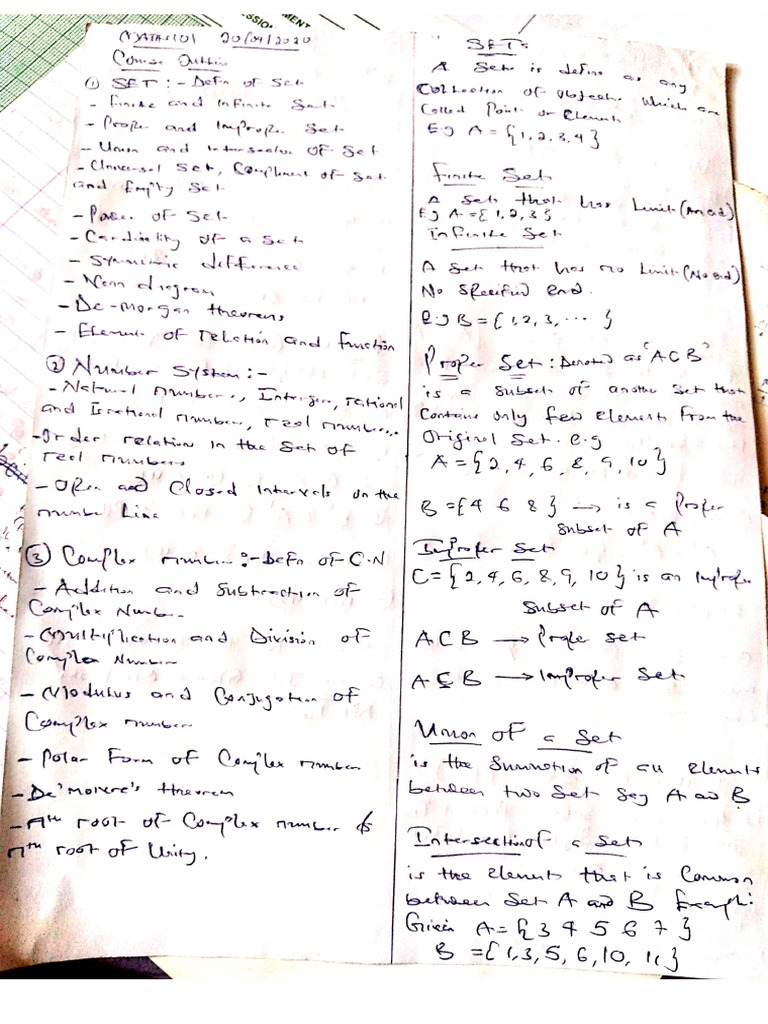 MATHS101 20/09/2020
Course Outline
① SET :- Defn of Set
- Finite and Infinite Set
- Proper and Improper Set
- Union and Intersection of Set
- Universal Set, Compliment of Set
and Empty Set
- Power of Set
- Cardinality of a Set
- Symmetric difference
- Venn diagram
- De-morgan theorems
- Element of relation and function
② Number System :-
- Natural numbers, Intergers, rational
and Irrational numbers, real numbers..
- Order relation in the Set of
real numbers
- Open and Closed Intervals on the
number Line
③ Complex number :- Defn of C.N
- Addition and Subtraction of
Complex Number.
- Multiplication and Division of
Complex Number
- Modulus and Conjugation of
Complex number
- Polar Form of Complex number
- De'moivre's theorem
- nth root of Complex number &
nth root of Unity.
SET:
A Set is define as any
Collection of objects which are
Called Point or Element
E.g A = {1, 2, 3, 4}
Finite Set
A Set that has Limit (An end)
Eg A = {1, 2, 3}
Infinite Set
A Set that has no Limit (No end)
No Specified end.
e.g B = {1, 2, 3, ... }
Proper Set : Denoted as 'A⊂B'
is a Subset of another Set that
Contains only few element from the
Original Set. e.g
A = {2, 4, 6, 8, 9, 10}
B = {4 6 8} → is a Proper
Subset of A
Improper Set
C = {2, 4, 6, 8, 9, 10} is an Improper
Subset of A
A⊂B → Prope Set
A⊆B → Improper Set
Union Of a Set
is the Summation of all elements
between two Set Say A and B
Intersection of a Set
is the element that is Common
between Set A and B Exampl:
Given A = {3 4 5 6 7}
B = {1, 3, 5, 6, 10, 11}